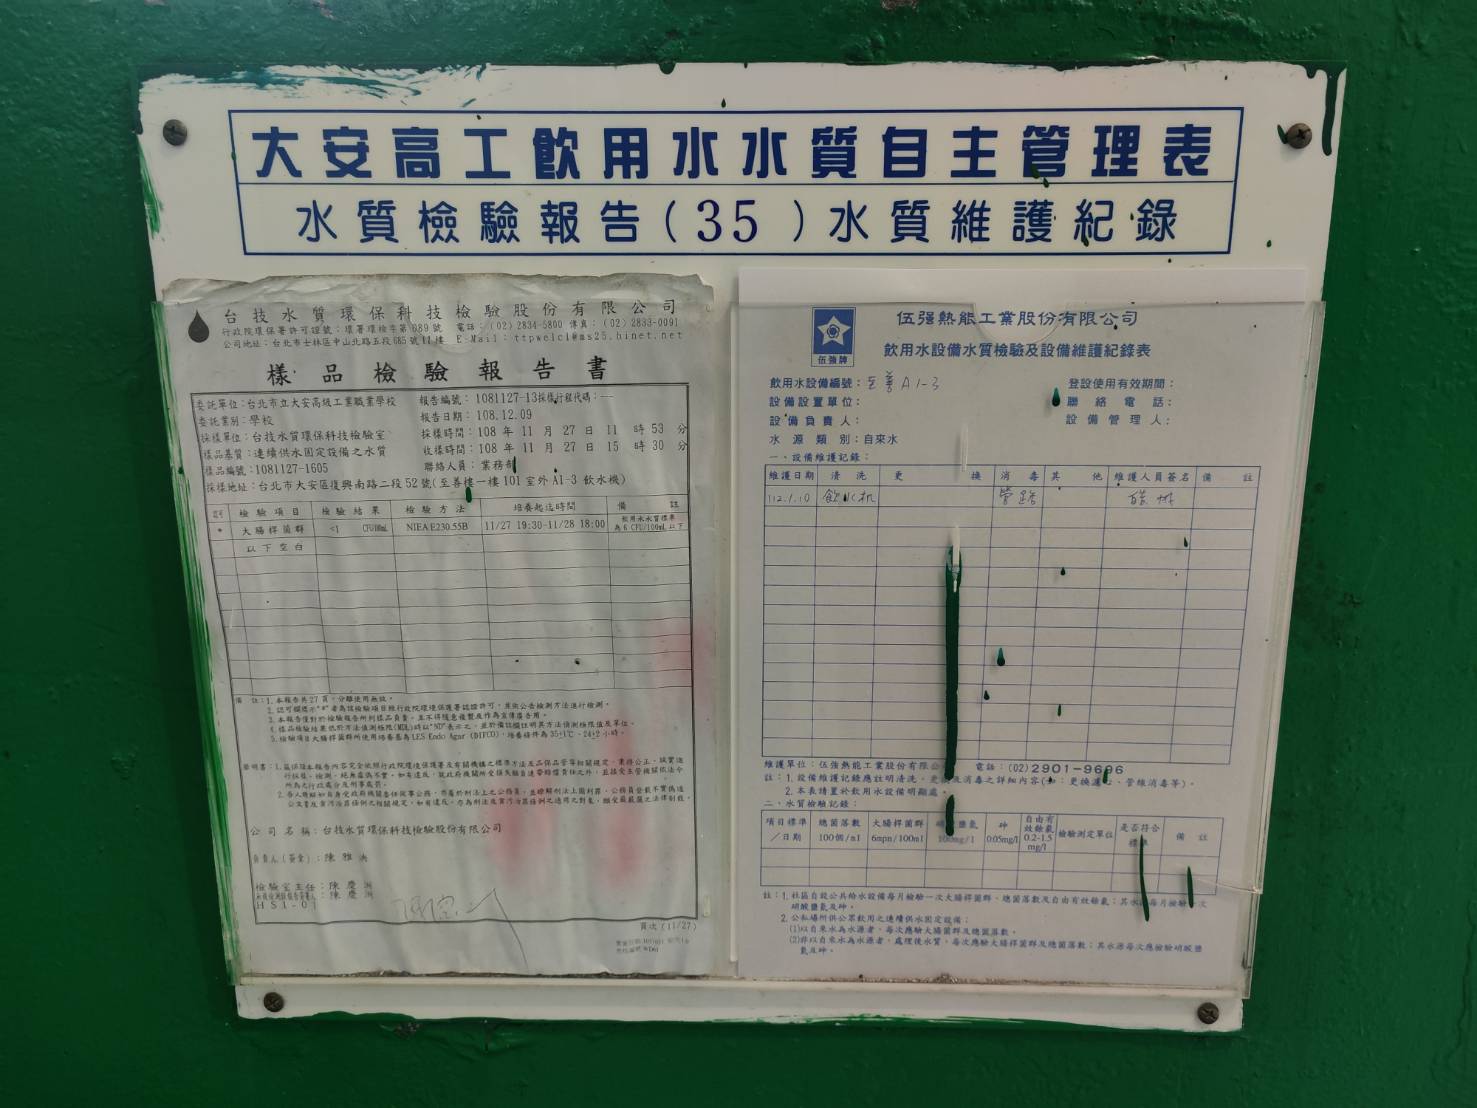 大安高工飲用水水質自主管理表
水質檢驗報告(35)水質維護紀錄
台技水質環保科技檢驗股份有限公司
行政院環保署許可證號：環署環檢字第089號 電話：(02)2834-5800 傳真：(02)2833-0091
公司地址：台北市士林區中山北路五段685號11樓 E-Mail：ttpwelcl@ms25.hinet.net
樣品檢驗報告書
委託單位：台北市立大安高級工業職業學校 報告編號：1081127-13採樣行程代碼：---
委託業別：學校 報告日期：108.12.09
採樣單位：台技水質環保科技檢驗室 採樣時間：108 年 11 月 27 日 11 時 53 分
樣品基質：連續供水固定設備之水質 收樣時間：108 年 11 月 27 日 15 時 30 分
樣品編號：1081127-1605 聯絡人員：業務部
採樣地址：台北市大安區復興南路二段52號(至善樓一樓101室外A1-3 飲水機)
檢驗項目 檢驗結果 檢驗方法 培養起迄時間 備註
* 大腸桿菌群 <1 CFU/100mL NIEA E230.55B 11/27 19:30-11/28 18:00 飲用水水質標準為6 CFU/100mL以下
以下空白
備註：1.本報告共27頁，分離使用無效。
2.認可欄標示"*"者為該檢驗項目經行政院環境保護署認證許可，並依公告檢測方法進行檢測。
3.本報告僅對於檢驗報告所列樣品負責，且不得隨意複製及作為宣傳廣告用。
4.樣品檢驗結果低於方法偵測極限(MDL)時以"ND"表示之，並於備註欄註明其方法偵測極限值及單位。
5.檢驗項目大腸桿菌群所使用培養基為LES Endo Agar (DIFCO)，培養條件為35±1℃、24±2小時。
公司名稱：台技水質環保科技檢驗股份有限公司
負責人(簽章)：陳雅
檢驗室主任：陳慶
HSI-01
頁次(11/27)
伍強牌
伍强熱能工業股份有限公司
飲用水設備水質檢驗及設備維護紀錄表
飲用水設備編號：至善A1-3 登設使用有效期間：
設備設置單位： 聯絡電話：
設備負責人： 設備管理人：
水源類別：自來水
一、設備維護記錄：
維護日期 清洗 更換 消毒 其他 維護人員簽名 備註
112.1.10 飲水机 管路
維護單位：伍強熱能工業股份有限公 電話：(02)2901-9696
註：1.設備維護記錄應註明清洗、更換及消毒之詳細內容(如：更換濾心、管維消毒等)。
2.本表請置於飲用水設備明顯處。
二、水質檢驗記錄：
項目標準／日期 總菌落數100個/ml 大腸桿菌群6mpn/100ml 硝酸鹽氮100mg/l 砷0.05mg/l 自由有效餘氯0.2-1.5mg/l 檢驗測定單位 是否符合標準 備註
註：1.社區自設公共給水設備每月檢驗一次大腸桿菌群、總菌落數及自由有效餘氯；其水源每月檢驗一次
硝酸鹽氮及砷。
2.公私場所供公眾飲用之連續供水固定設備：
(1)以自來水為水源者，每次應驗大腸菌群及總菌落數。
(2)非以自來水為水源者，處理後水質，每次應驗大腸桿菌群及總菌落數；其水源每次應檢驗硝酸鹽
氮及砷。